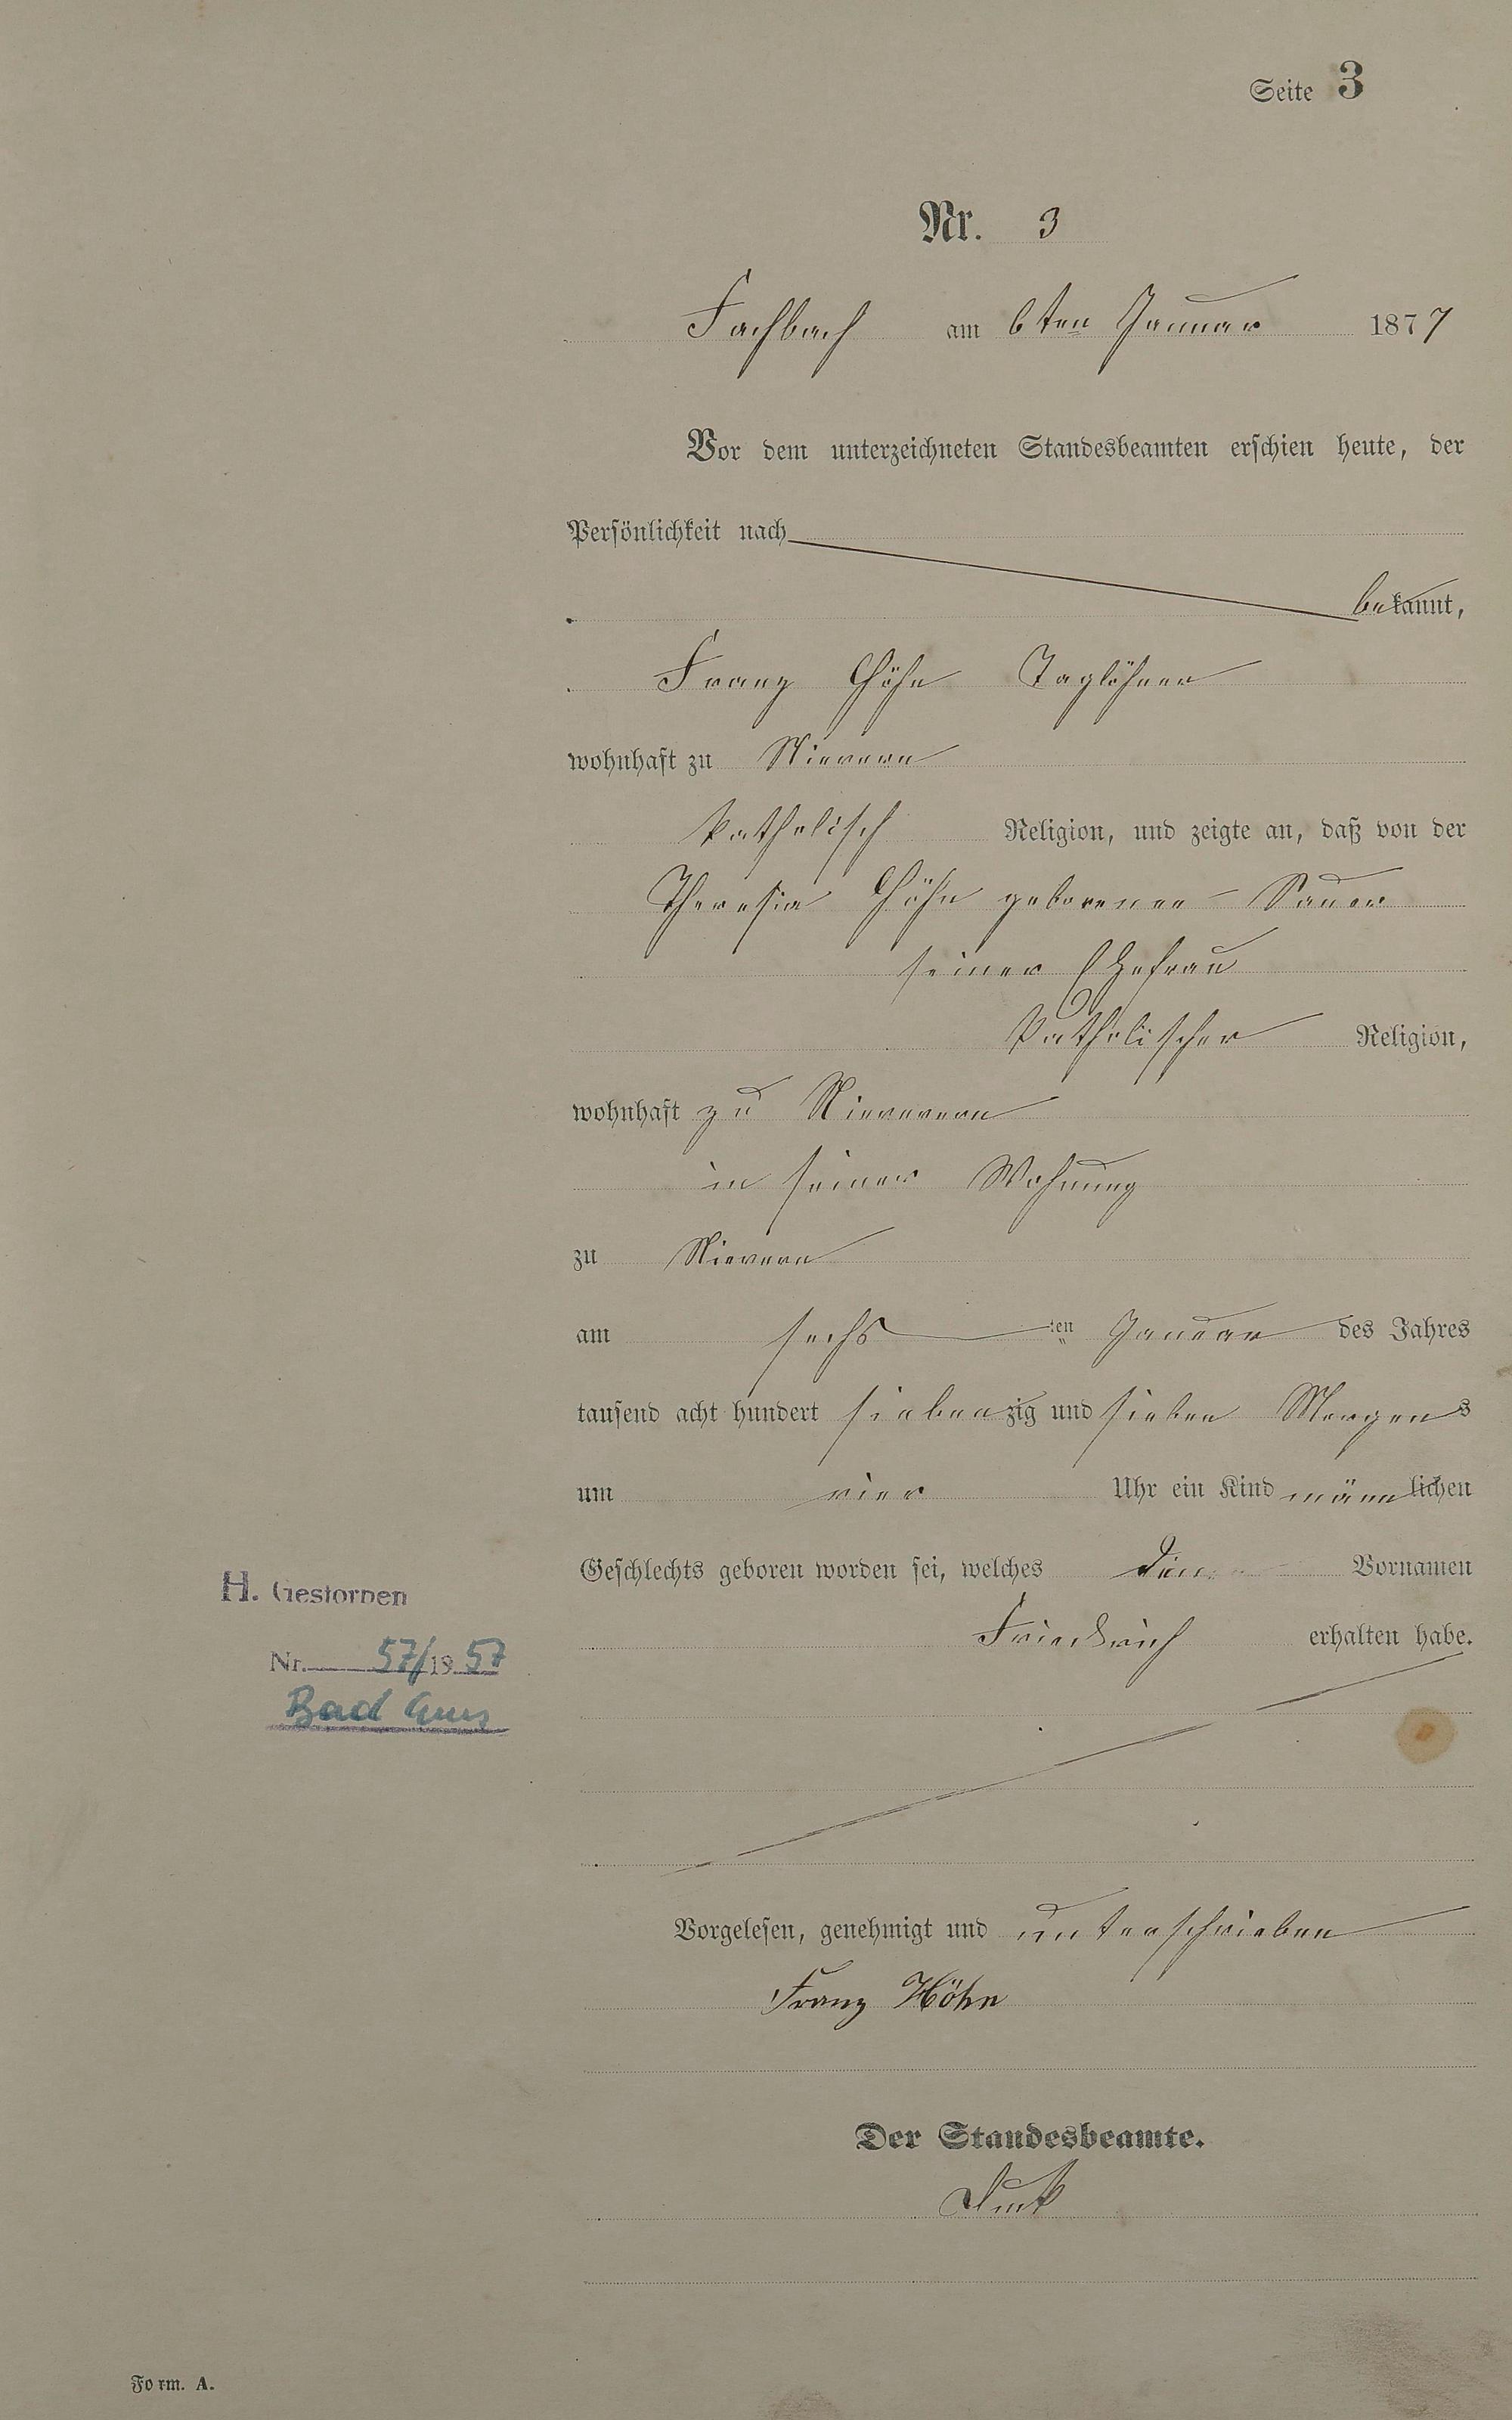 Seite 3
Nr. 3
Fachbach am 6ten Januar 1877
Vor dem unterzeichneten Standesbeamten erschien heute, der
Persönlichkeit nach
bekannt,
Franz Höhn Taglöhner
wohnhaft zu Nievern
katholisch Religion, und zeigte an, daß von der
Theresia Höhn geborenen Sauer
seiner Ehefrau
katholischer Religion,
wohnhaft zu Nievern
in seiner Wohnung
zu Nievern
am sechsten Januar des Jahres
tausend acht hundert siebenzig und sieben Morgens
um vier Uhr ein Kind männlichen
Geschlechts geboren worden sei, welches den Vornamen
Friedrich erhalten habe.
H. Gestorben
Nr. 57/1957
Bad Ems
Vorgelesen, genehmigt und unterschrieben
Franz Höhn
Der Standesbeamte.
Form. A.